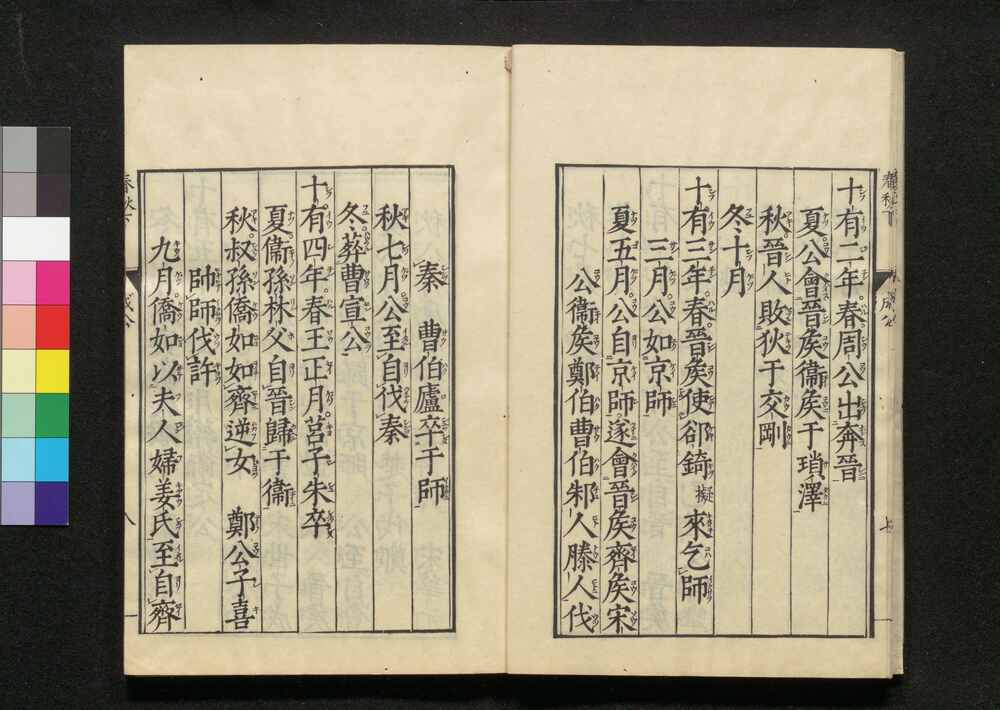 十有二年春周公出奔晉
夏公會晉矦衞矦于瑣澤
秋晉人敗狄于交剛
冬十月
十有三年春晉矦使郤錡擬來乞師
三月公如京師
夏五月公自京師遂會晉矦齊矦宋
公衞矦鄭伯曹伯邾人滕人伐
春秋下
成公
七
秦　曹伯廬卒于師
秋七月公至自伐秦
冬葬曹宣公
十有四年春王正月莒子朱卒
夏衞孫林父自晉歸于衞
秋叔孫僑如如齊逆女　鄭公子喜
帥師伐許
九月僑如以夫人婦姜氏至自齊
春秋下
成公
八